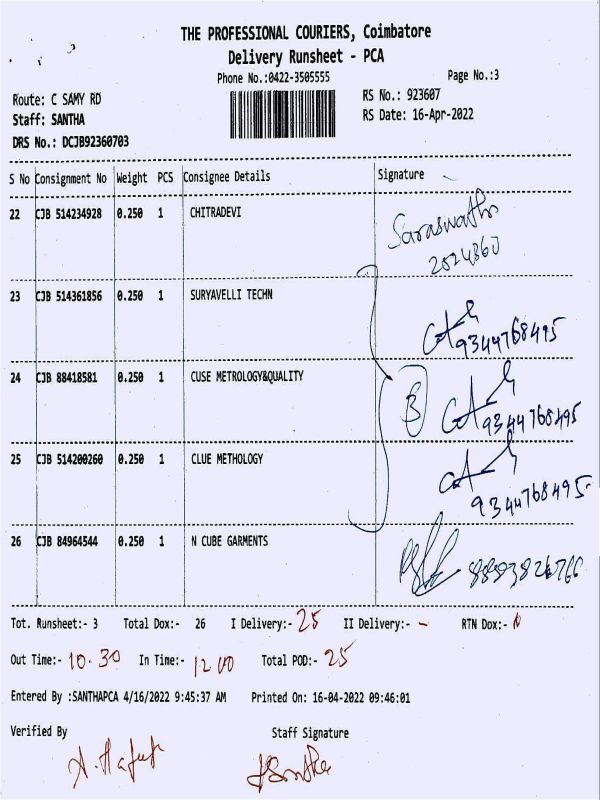 THE PROFESSIONAL COURIERS, Coimbatore
Delivery Runsheet - PCA
Phone No.:0422-3505555 Page No.:3
Route: C SAMY RD RS No.: 923607
Staff: SANTHA RS Date: 16-Apr-2022
DRS No.: DCJB92360703
S No Consignment No Weight PCS Consignee Details Signature
22 CJB 514234928 0.250 1 CHITRADEVI Saraswathi
2524360
23 CJB 514361856 0.250 1 SURYAVELLI TECHN
9344768495
24 CJB 88418581 0.250 1 CUSE METROLOGY&QUALITY B
9344768495
25 CJB 514200260 0.250 1 CLUE METHOLOGY
9344768495
26 CJB 84964544 0.250 1 N CUBE GARMENTS
Tot. Runsheet:- 3 Total Dox:- 26 I Delivery:- 25 II Delivery:- - RTN Dox:-
Out Time:- 10.30 In Time:- 12 00 Total POD:- 25
Entered By :SANTHAPCA 4/16/2022 9:45:37 AM Printed On: 16-04-2022 09:46:01
Verified By Staff Signature
Santha